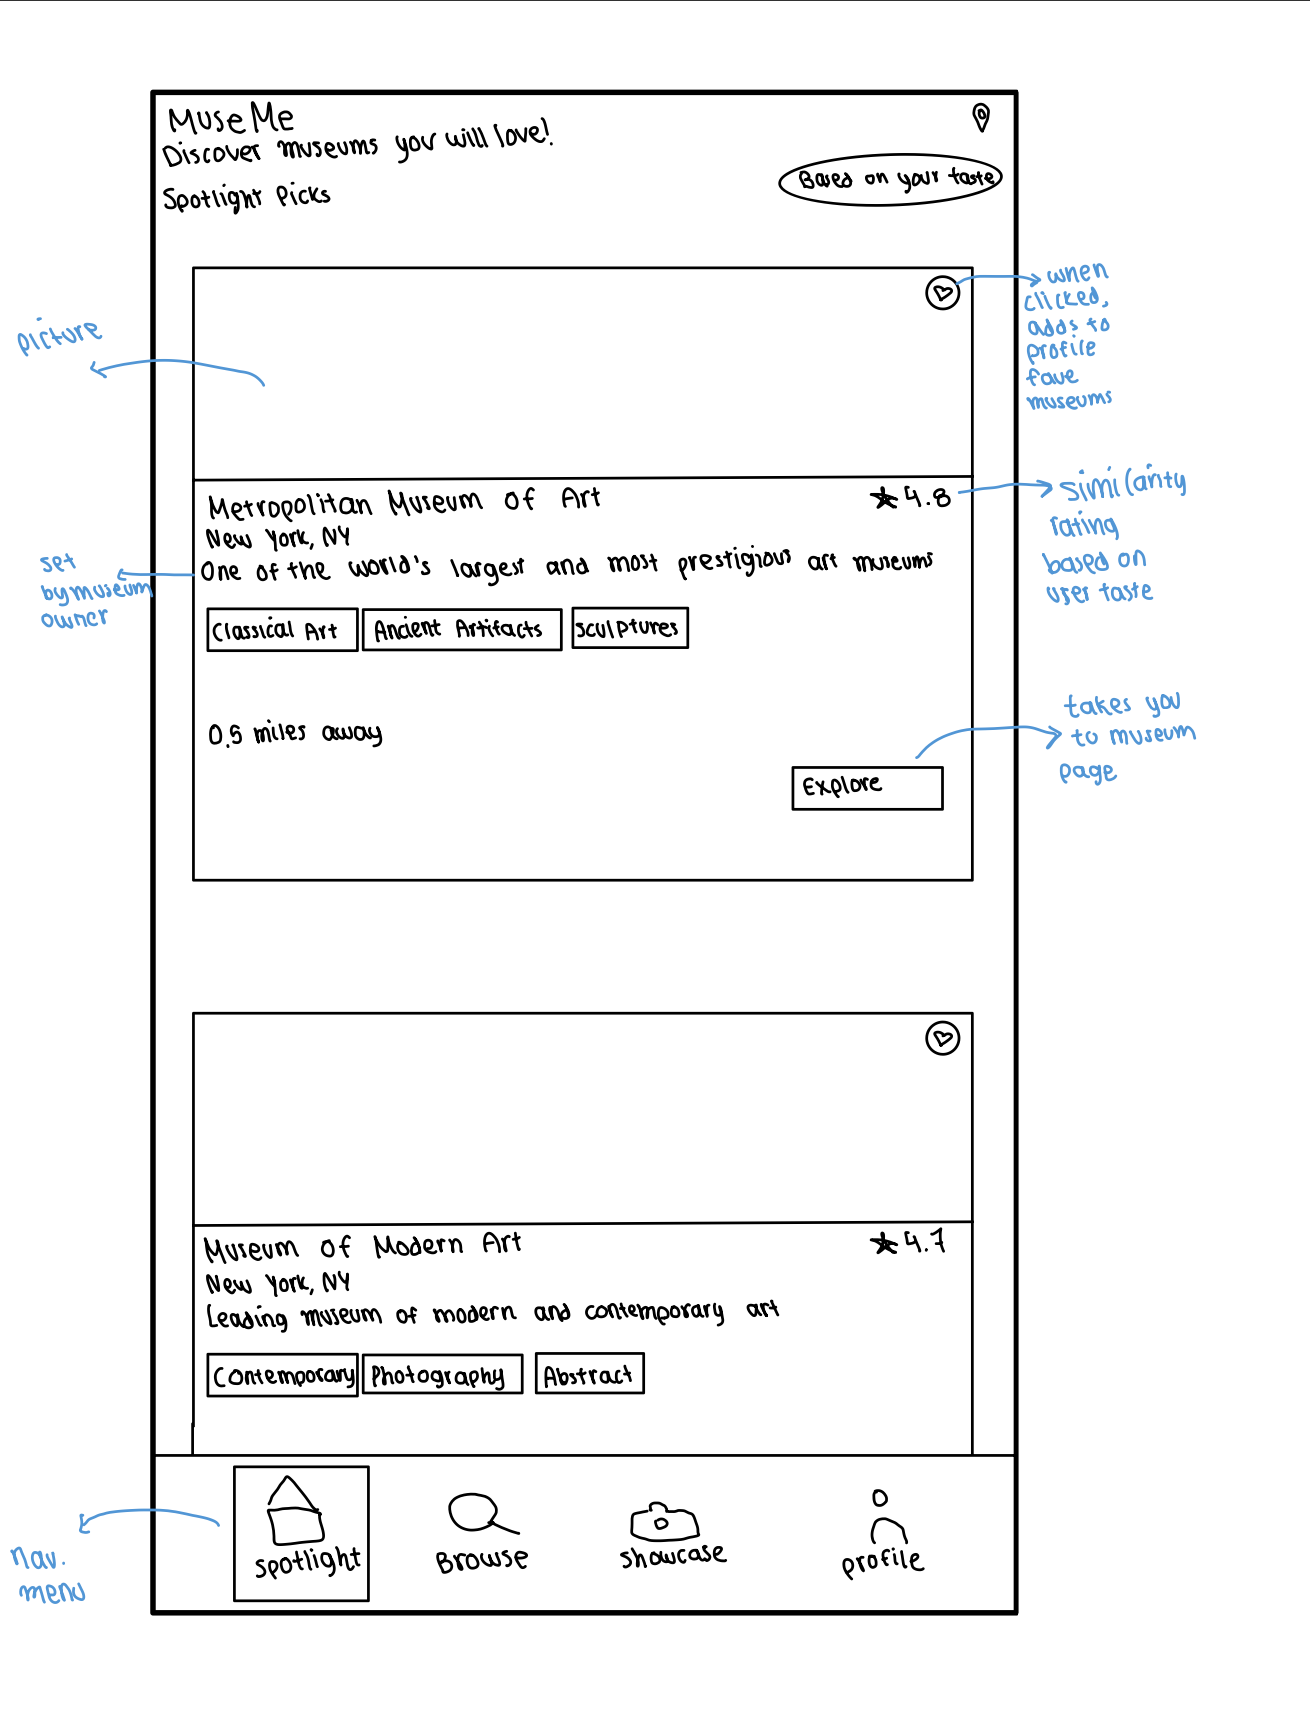 MuseMe
Discover museums you will love!
Spotlight Picks
Based on your taste
when
clicked,
adds to
profile
fave
museums
picture
Metropolitan Museum of Art
★4.8
New York, NY
One of the world's largest and most prestigious art museums
similarity
rating
based on
user taste
set
by museum
owner
Classical Art
Ancient Artifacts
sculptures
0.5 miles away
Explore
takes you
to museum
page
Museum of Modern Art
★4.7
New York, NY
Leading museum of modern and contemporary art
Contemporary
Photography
Abstract
nav.
menu
spotlight
Browse
showcase
profile